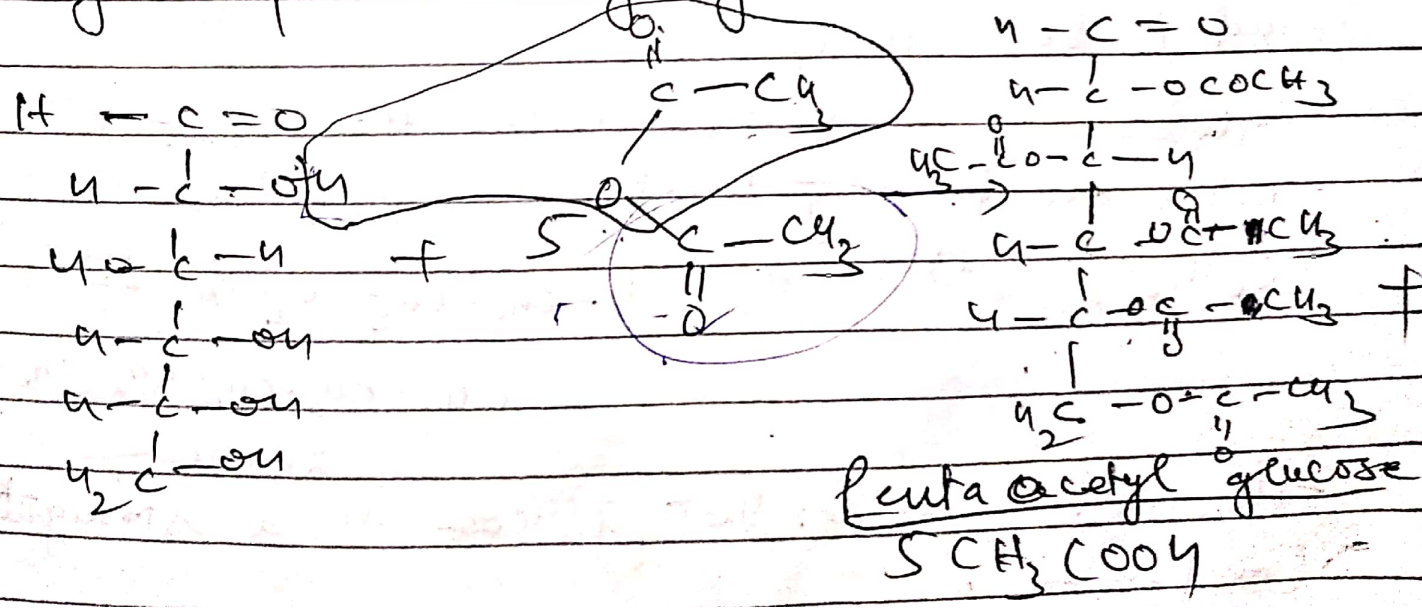 O
||
C — CH3
H — C = O
H — C — OH
HO — C — H
H — C — OH
H — C — OH
H2C — OH
+
5
O
C — CH3
||
O
→
H — C = O
H — C — OCOCH3
O
H3C — C O — C — H
O
H — C — OC — CH3
H — C — OC — CH3
O
H2C — O — C — CH3
O
+
Penta acetyl glucose
5 CH3 COOH